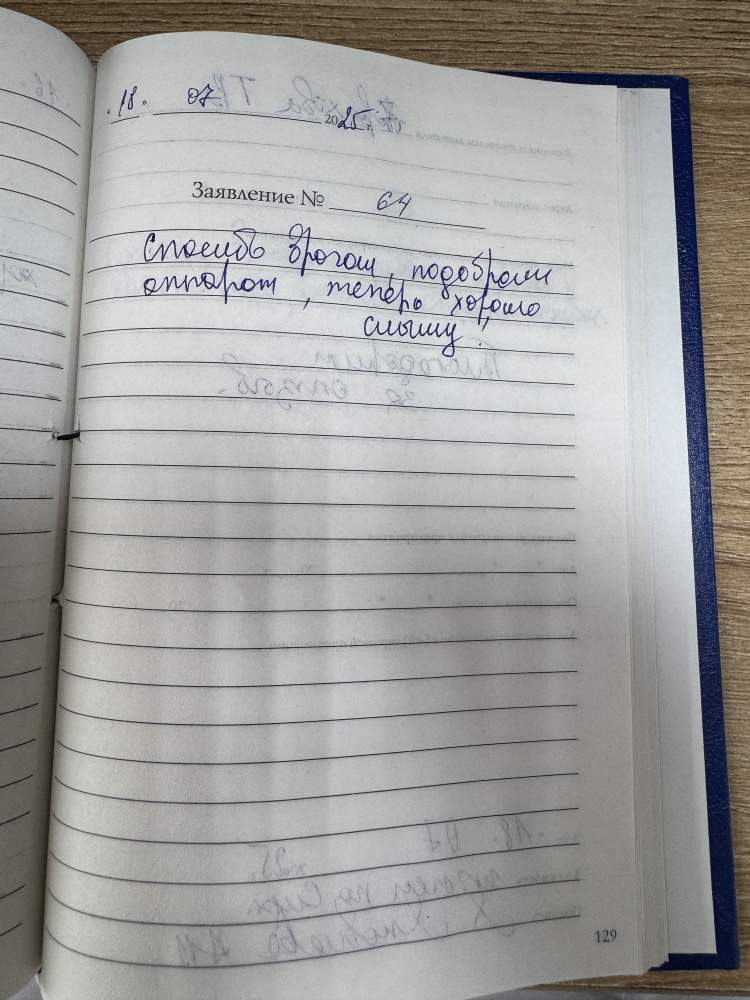 18. 07 2025 г.
Заявление № 64
Спасибо врачам, подобрали
аппарат, теперь хорошо
слышу.
129